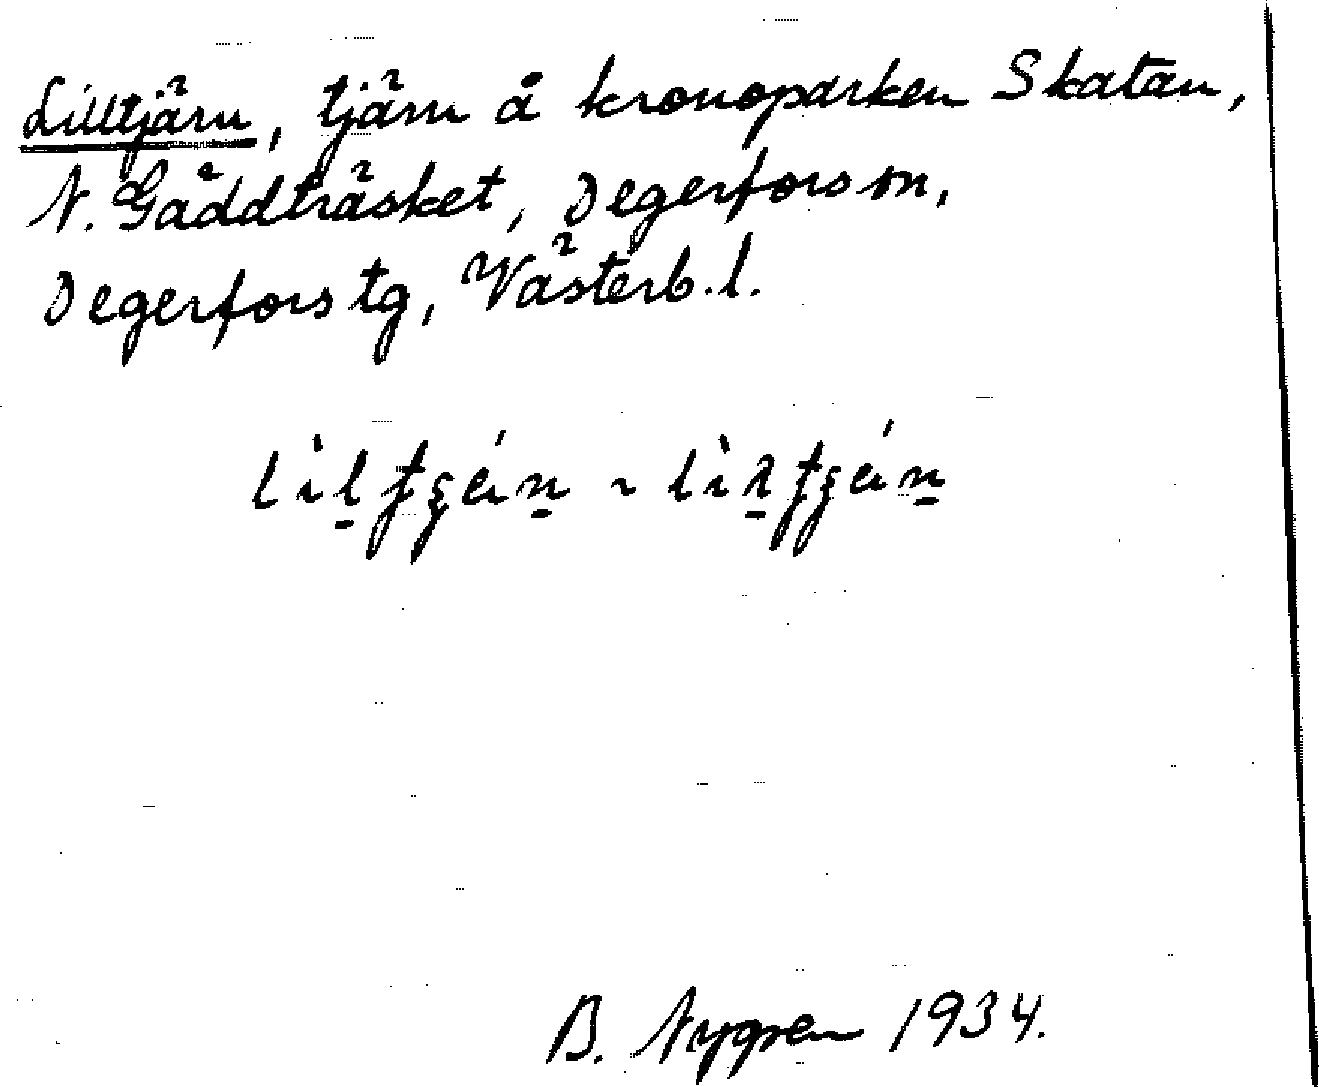 Lilltjärn, tjärn å kronoparken Skatan,
N. Gäddträsket, Degerfors sn,
Degerfors tg, Västerb. l.
B. Nygren 1934.